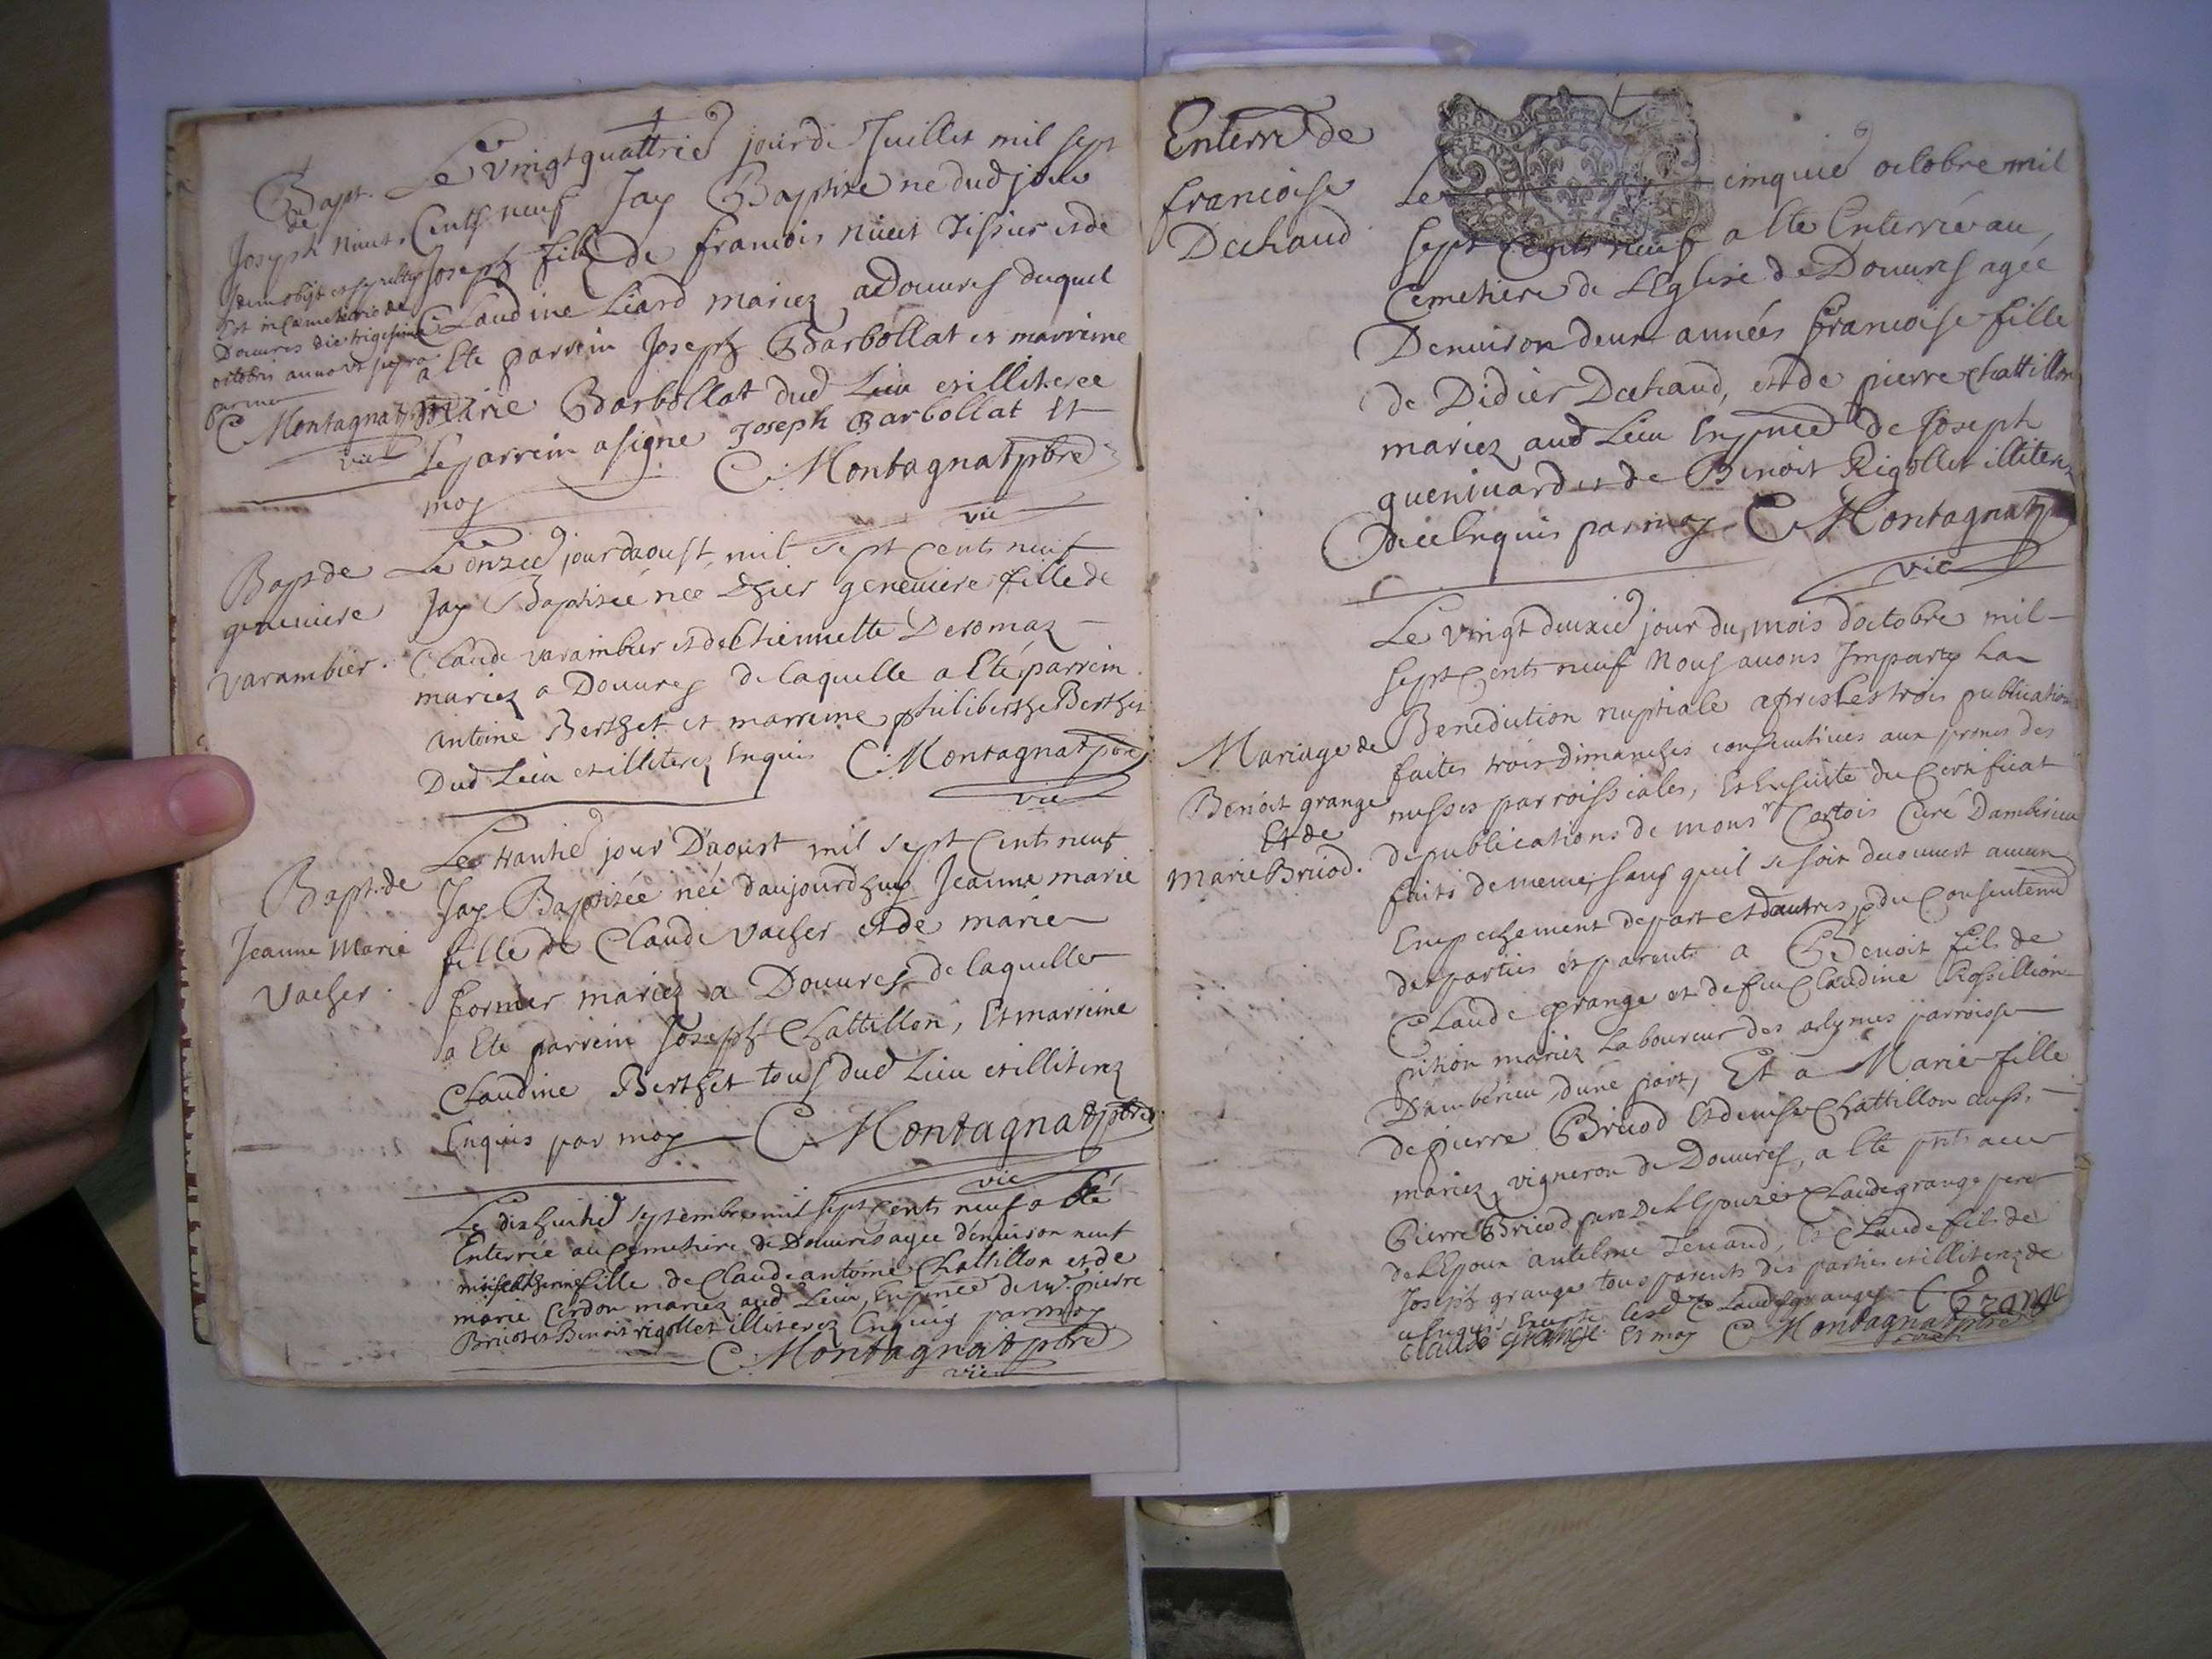 Bapt.
de
Joseph Niuet.
idem obijt et sepultus
est in Cæmeterio de
Douures die trigesima
octobris anno vt supra
par moy
C Montagnat
vic
Le vingt quattrie jour de Juillet mil sept
Cents neuf Jay Baptize ne dud jour
Joseph filz de francois niuet Tissier et de
Claudine Liard mariez a Douures duquel
a ete parrein Joseph Barbollat et marreine
Marie Barbollat dud Lieu et illiteree
Le parrein a signe Joseph Barbollat Et
moy C Montagnat pbre
vic
Bapt de
geneuieue
Varambier.
Le onzie jour daoust mil sept Cents neuf
Jay Baptizée née Dhier geneuieue fille de
Claude varambier et de Etiennette Deromaz
mariez a Douures de laquelle a Eté parrein
antoine Berthet et marreine philiberthe Berthet
Dud Lieu et illiterez Enquis C Montagnat pbre
vic
Bapt. de
Jeanne Marie
Vacher.
Le trantie jour Daoust mil sept Cents neuf
Jay Baptizée née daujourdhuy Jeanne marie
fille de Claude Vacher et de marie
fornier mariez a Douures de laquelle
a Ete parrein Joseph Chattillon, Et marreine
Claudine Berthet tous dud Lieu et illiterez
Enquis par moy C Montagnat pbre
vic
Le dixhuitie septembre mil sept Cents neuf a Eté
Enterrée au Cemetiere de Douures agée d'enuiron neuf
fille de Claude antoine Chattillon et de
marie Cerdon mariez aud Lieu, En pnce de Mr pierre
Bricod et Benoit rigollet illiterez Enquis par moy
C Montagnat pbre
vic
Enterre de
francoise
Dechaud
Le cinquie octobre mil
sept Cents neuf a Ete Enterrée au
Cemetiere de L'Eglise de Douures agée
Denuiron deux années francoise fille
de Didier Dechaud, et de pierre chattillon
mariez aud Lieu En pnce de Joseph
gueniuard et de Benoit Rigollet illiterez
de ce Enquis par moy C Montagnat
vic
Mariage de
Benoit grange
Et de
Marie Bricod.
Le vingt deuxie jour du mois d'octobre mil
sept Cents neuf Nous auons Imparty La
Benediction nuptiale apres Les trois publications
faites trois Dimanches consecutiues aux prones des
messes parroissiales, Et Ensuite du Certificat
de publications de monsr Cortois Curé Damberieu
faits de meme, sans quil se soit decouuert aucun
Empechement de part et dautres, du Consentemt
des parties et parents a Benoit fils de
Claude grange et de feu Claudine Rossillion
mariez Laboureur des parroisse
D'amberieu, dune part, Et a Marie fille
de pierre Bricod et denise Chattillon aussi
mariez, vigneron de Douures, a Ete pnts auec
Pierre Bricod pere de L'Epouze Claude grange pere
de L'Epoux antelme Tenand, Et Claude fils de
Joseph grange tous parents des parties et illiterez de
ce Enquis Excepte Lesd Claude granges C Grange
claude grange Et moy C Montagnat pbre
vic